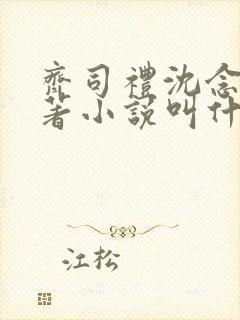 齊司禮沈念
著小說叫什
江松